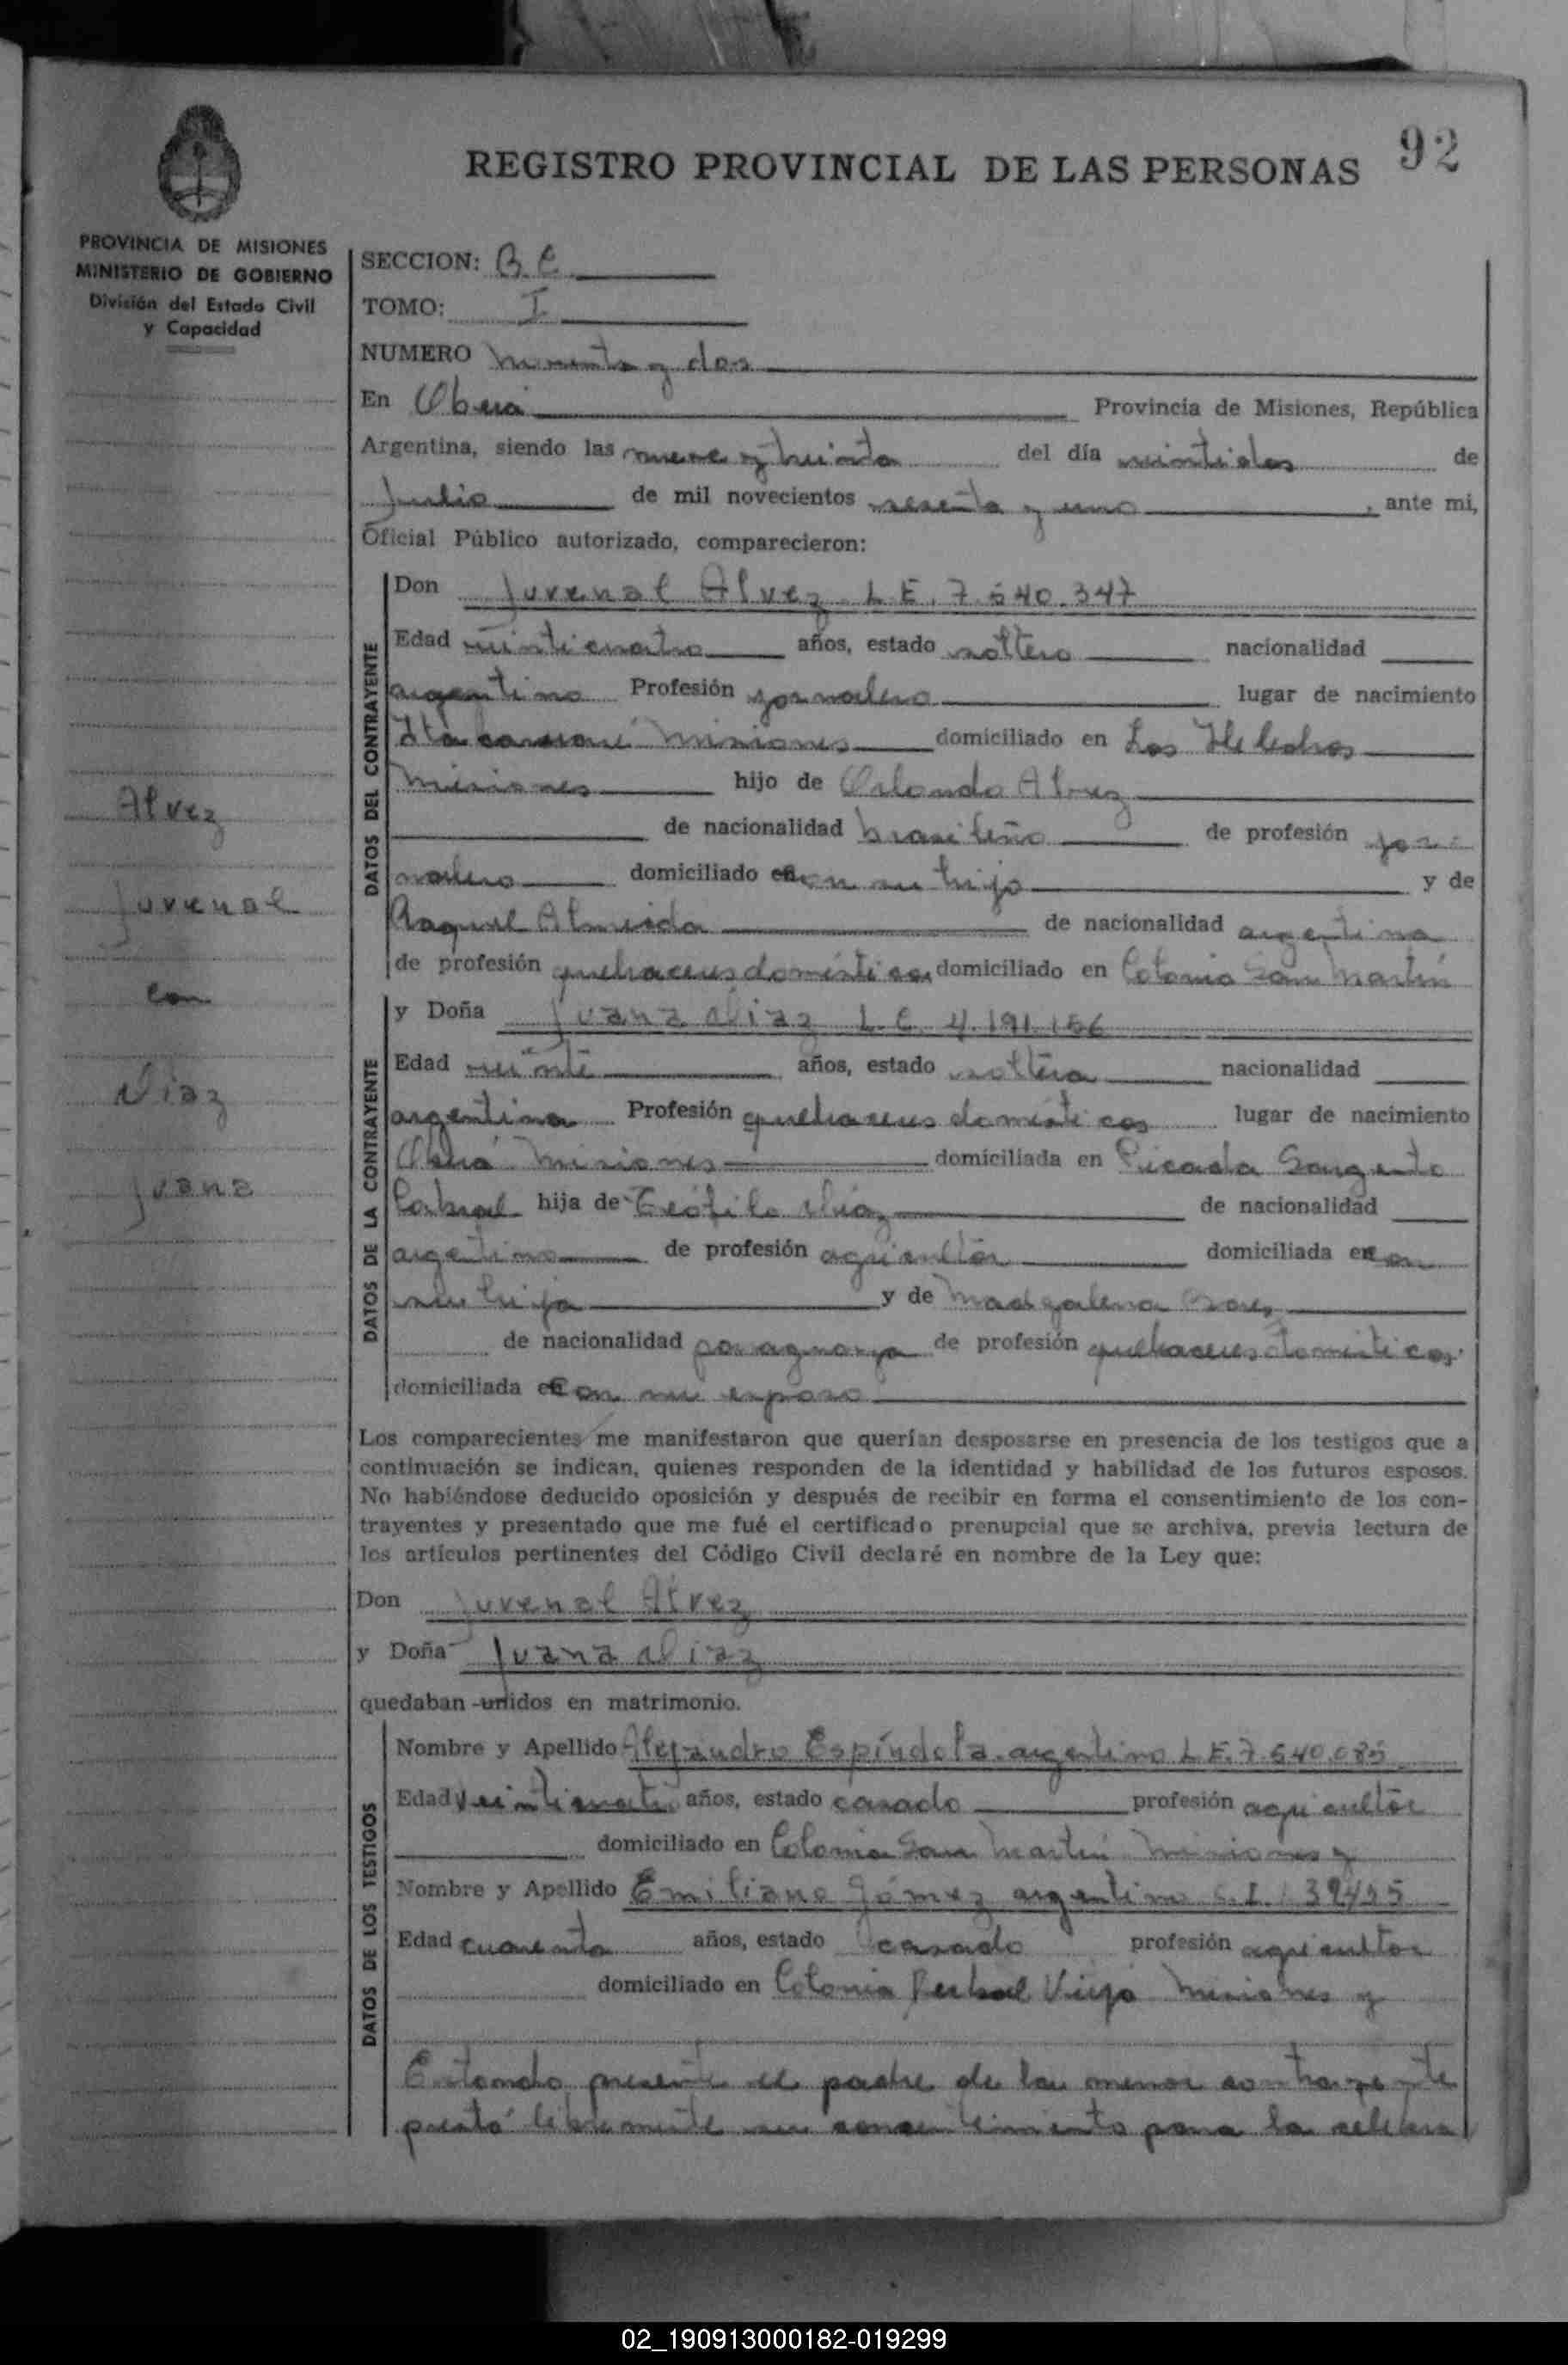 92
REGISTRO PROVINCIAL DE LAS PERSONAS
PROVINCIA DE MISIONES
MINISTERIO DE GOBIERNO
División del Estado Civil
y Capacidad
Alvez
Juvenal
con
Diaz
Juana
SECCION: B. C.
TOMO: I
NUMERO Noventa y dos
En Oberá Provincia de Misiones, República
Argentina, siendo las nueve y treinta del día veintidos de
Julio de mil novecientos sesenta y uno, ante mi,
Oficial Público autorizado, comparecieron:
DATOS DEL CONTRAYENTE
Don Juvenal Alvez L.E. 7.540.347
Edad veinticuatro años, estado soltero nacionalidad
argentino Profesión jornalero lugar de nacimiento
Itacaruaré Misiones domiciliado en Los Helechos
Misiones hijo de Orlando Alvez
de nacionalidad brasileño de profesión jor-
nalero domiciliado con su hijo y de
Raquel Almeida de nacionalidad argentina
de profesión quehaceres domésticos domiciliado en Colonia San Martín
DATOS DE LA CONTRAYENTE
y Doña Juana Diaz L.C. 4.191.156
Edad veinte años, estado soltera nacionalidad
argentina Profesión quehaceres domésticos lugar de nacimiento
Oberá Misiones domiciliada en Picada Sargento
Cabral hija de Teófilo Diaz de nacionalidad
argentino de profesión agricultor domiciliada con
su hija y de Madgalena
de nacionalidad paraguaya de profesión quehaceres domésticos
domiciliada con su esposo
Los comparecientes me manifestaron que querían desposarse en presencia de los testigos que a
continuación se indican, quienes responden de la identidad y habilidad de los futuros esposos.
No habiéndose deducido oposición y después de recibir en forma el consentimiento de los con-
trayentes y presentado que me fué el certificado prenupcial que se archiva, previa lectura de
los artículos pertinentes del Código Civil declaré en nombre de la Ley que:
Don Juvenal Alvez
y Doña Juana Diaz
quedaban unidos en matrimonio.
DATOS DE LOS TESTIGOS
Nombre y Apellido Alejandro Espíndola argentino L.E. 7.540.085
Edad veinticuatro años, estado casado profesión agricultor
domiciliado en Colonia San Martín Misiones y
Nombre y Apellido Emiliano Gómez argentino C.I. 39455
Edad cuarenta años, estado casado profesión agricultor
domiciliado en Colonia Yerbal Viejo Misiones y
Estando presente el padre de la menor contrayente
prestó libremente su consentimiento para la celebra
02_190913000182-019299